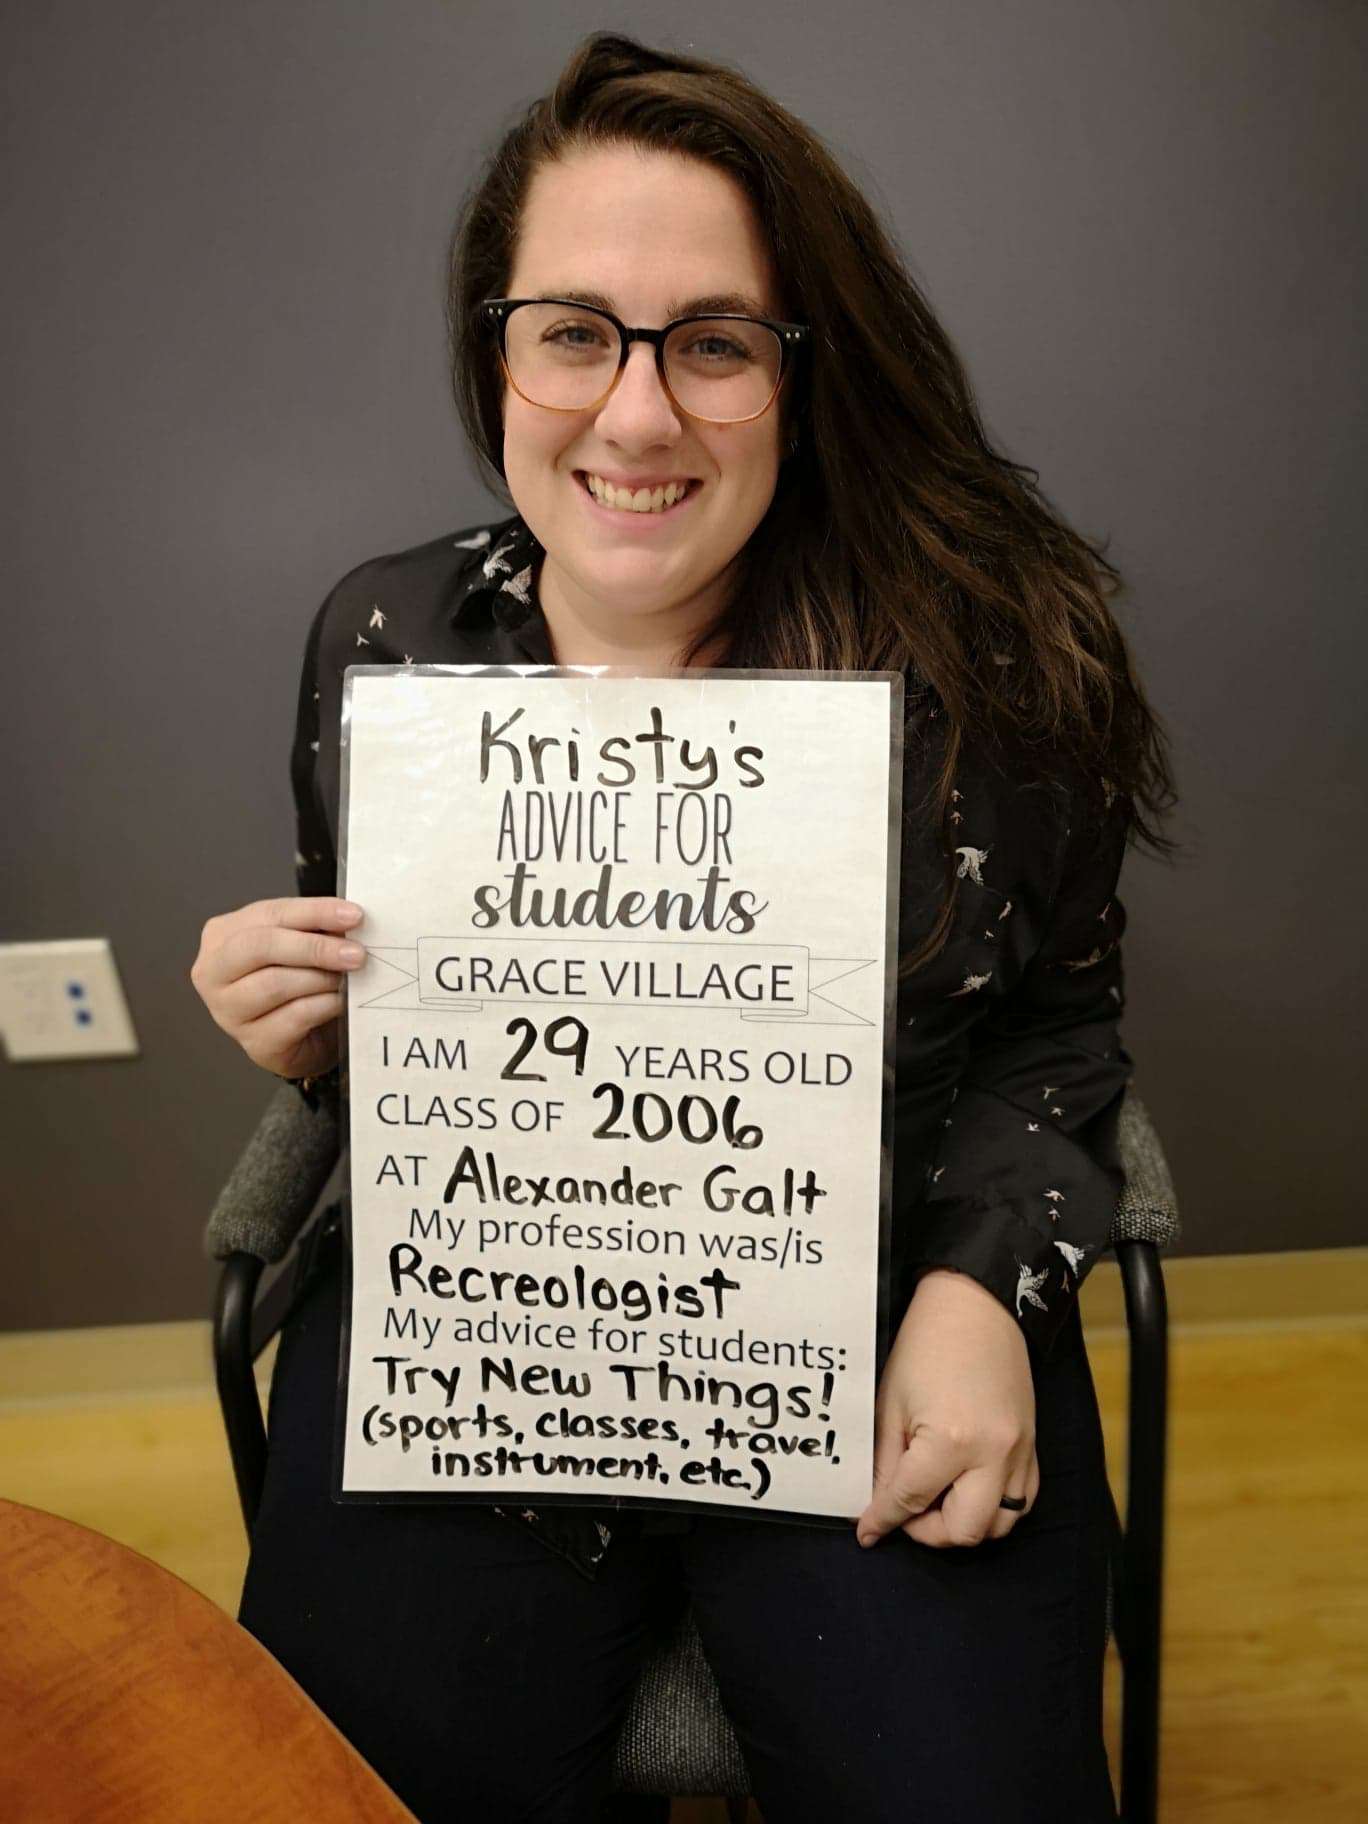 Kristy's
ADVICE FOR
students
GRACE VILLAGE
I AM 29 YEARS OLD
CLASS OF 2006
AT Alexander Galt
My profession was/is
Recreologist
My advice for students:
Try New Things!
(sports, classes, travel,
instrument, etc.)